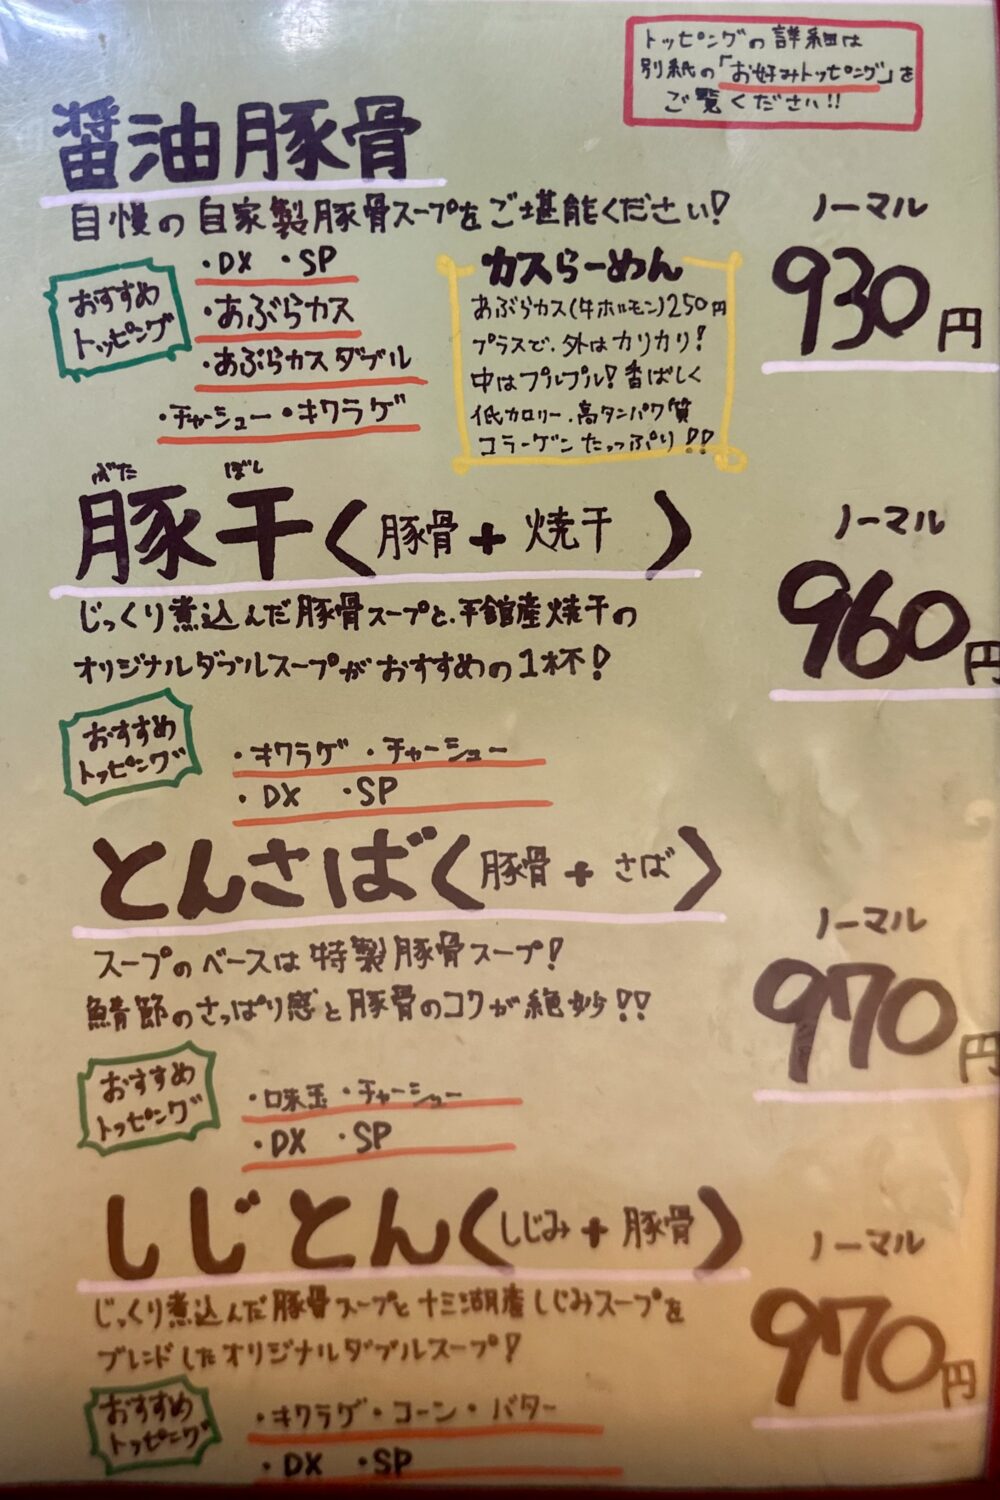 トッピングの詳細は
別紙の「お好みトッピング」を
ご覧ください!!
醤油豚骨
自慢の自家製豚骨スープをご堪能ください!
ノーマル
930円
おすすめ
トッピング
・DX ・SP
・あぶらカス
・あぶらカスダブル
・チャーシュー・キクラゲ
カスらーめん
あぶらカス(牛ホルモン)250円
プラスで、外はカリカリ!
中はプルプル!香ばしく
低カロリー、高タンパク質
コラーゲンたっっぷり!!
ぶた ぼし
豚干(豚骨+焼干)
じっくり煮込んだ豚骨スープと、平舘産焼干の
オリジナルダブルスープがおすすめの1杯!
ノーマル
960円
おすすめ
トッピング
・キクラゲ ・チャーシュー
・DX ・SP
とんさば(豚骨+さば)
スープのベースは特製豚骨スープ!
鯖節のさっぱり感と豚骨のコクが絶妙!!
ノーマル
970円
おすすめ
トッピング
・味玉 ・チャーシュー
・DX ・SP
しじとん(しじみ+豚骨)
じっくり煮込んだ豚骨スープと十三湖産しじみスープを
ブレンドしたオリジナルダブルスープ!
ノーマル
970円
おすすめ
トッピング
・キクラゲ・コーン・バター
・DX ・SP